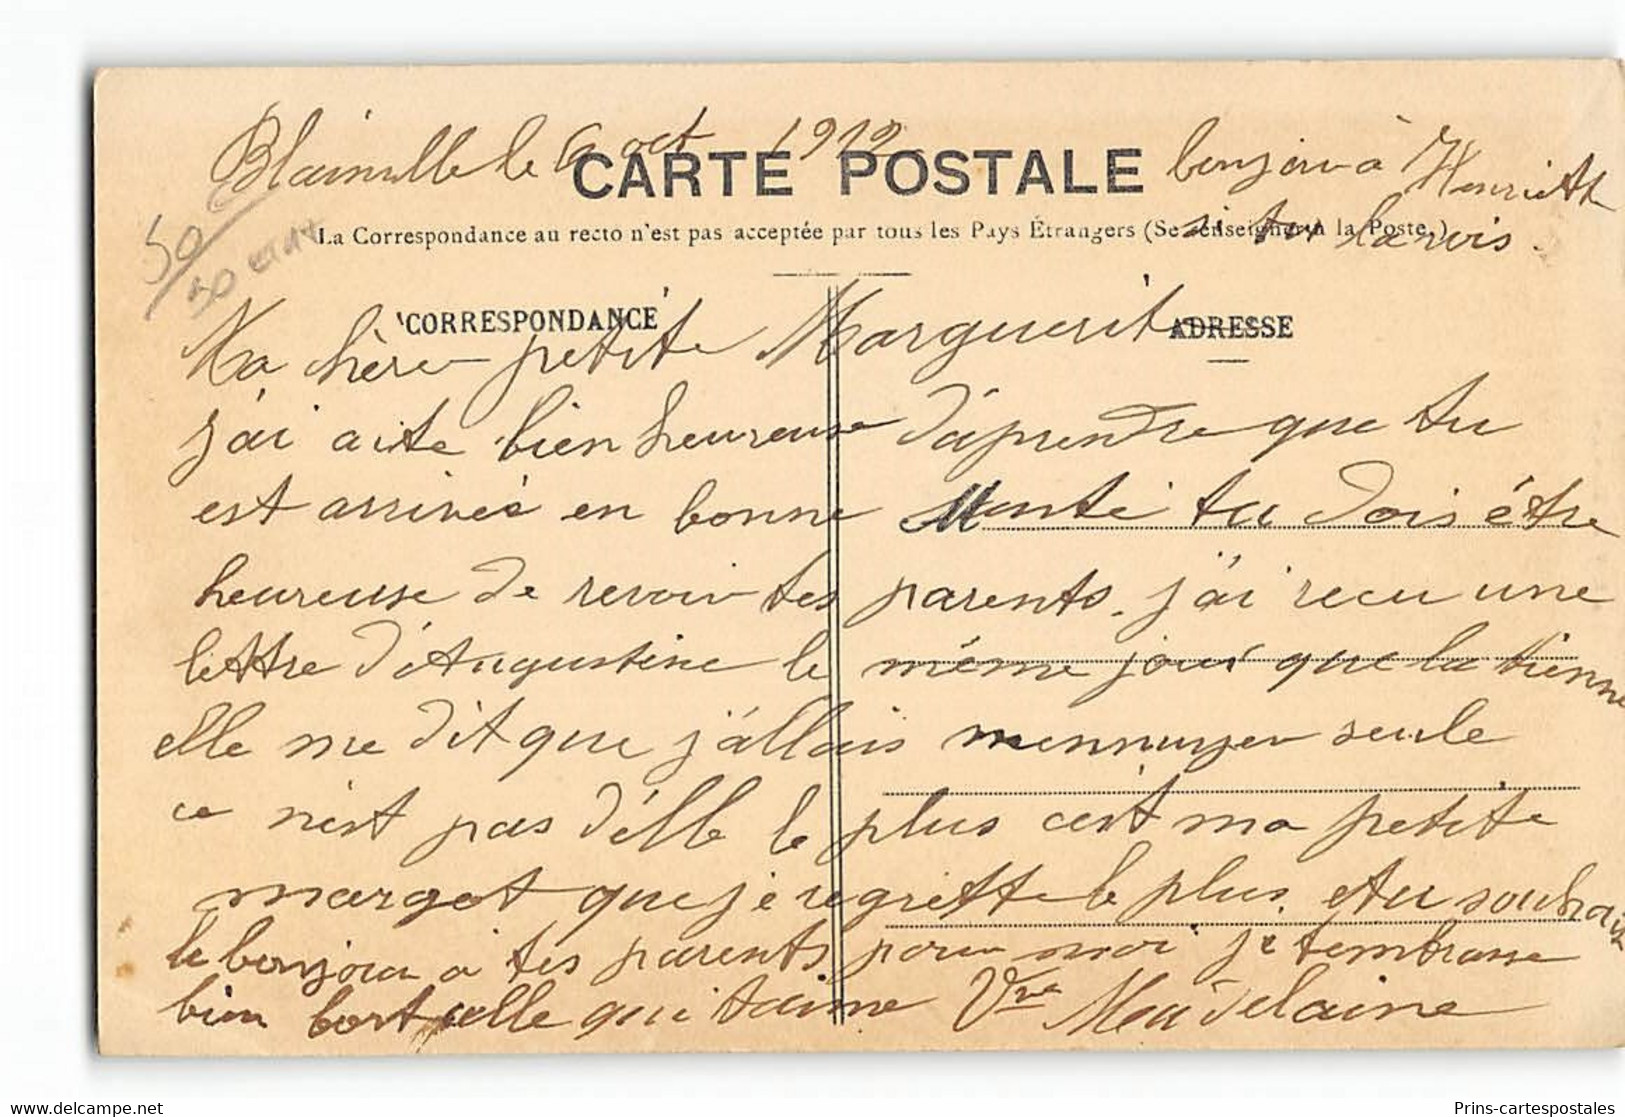 Blainville le 6 oct 1912
bonjour à Henriette
si tu la vois.
CARTE POSTALE
La Correspondance au recto n'est pas acceptée par tous les Pays Étrangers (Se renseigner à la Poste.)
50
CORRESPONDANCE
ADRESSE
Ma chère petite Marguerite
j'ai aite bien heureuse d'aprendre que tu
est arrivée en bonne santé tu dois être
heureuse de revoir tes parents. j'ai recu une
lettre d'Augustine le même jour que la tienne
elle me dit que j'allais mennuyer seule
ce n'est pas d'elle le plus c'est ma petite
margot que je regrette le plus. tu souhait
le bonjour a tes parents pour moi je tembrasse
bien fort celle qui taime Vve Madelaine
Prins-cartespostales